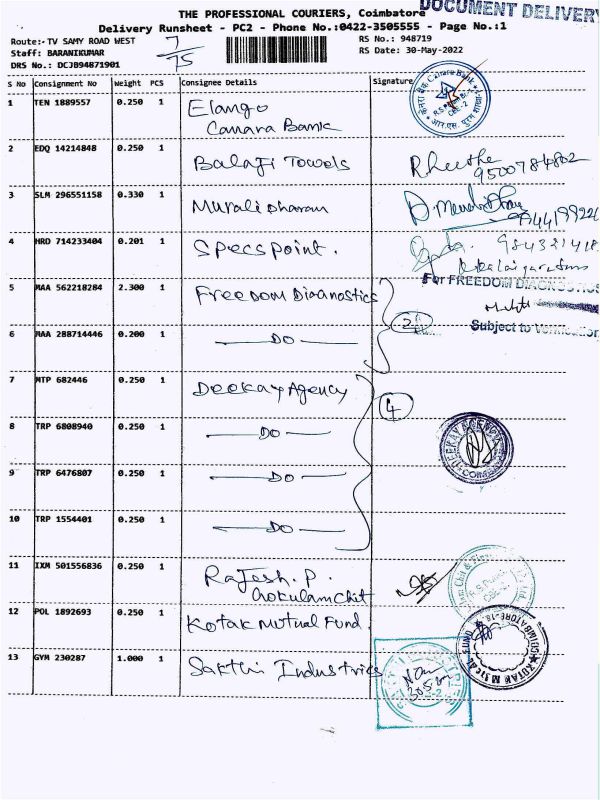 THE PROFESSIONAL COURIERS, Coimbatore
DOCUMENT DELIVERY
Delivery Runsheet - PC2 - Phone No.:0422-3505555 - Page No.:1
Route:- TV SAMY ROAD WEST
7/75
RS No.: 948719
Staff: BARANIKUMAR
RS Date: 30-May-2022
DRS No.: DCJB94871901
S No Consignment No Weight PCS Consignee Details Signature
1 TEN 1889557 0.250 1 Elango
Canara Bank
2 EDQ 14214848 0.250 1 Balaji Towels
9500784802
3 SLM 296551158 0.330 1 Murali Dharan
4 HRD 714233404 0.201 1 Specspoint.
5 MAA 562218284 2.300 1 Freedom Diagnostics
For FREEDOM DIAGNOSTICS
6 MAA 288714446 0.200 1 DO
2
Subject to Verification
7 MTP 682446 0.250 1 Deekay Agency
4
8 TRP 6808940 0.250 1 DO
DEEKAY AGENCY
9 TRP 6476807 0.250 1 DO
10 TRP 1554401 0.250 1 DO
11 IXM 501556836 0.250 1 Rajesh. P.
Gokulam Chit
12 POL 1892693 0.250 1 Kotak Mutual Fund.
KOTAK MUTUAL FUND
13 GYM 230287 1.000 1 Sakthi Industries